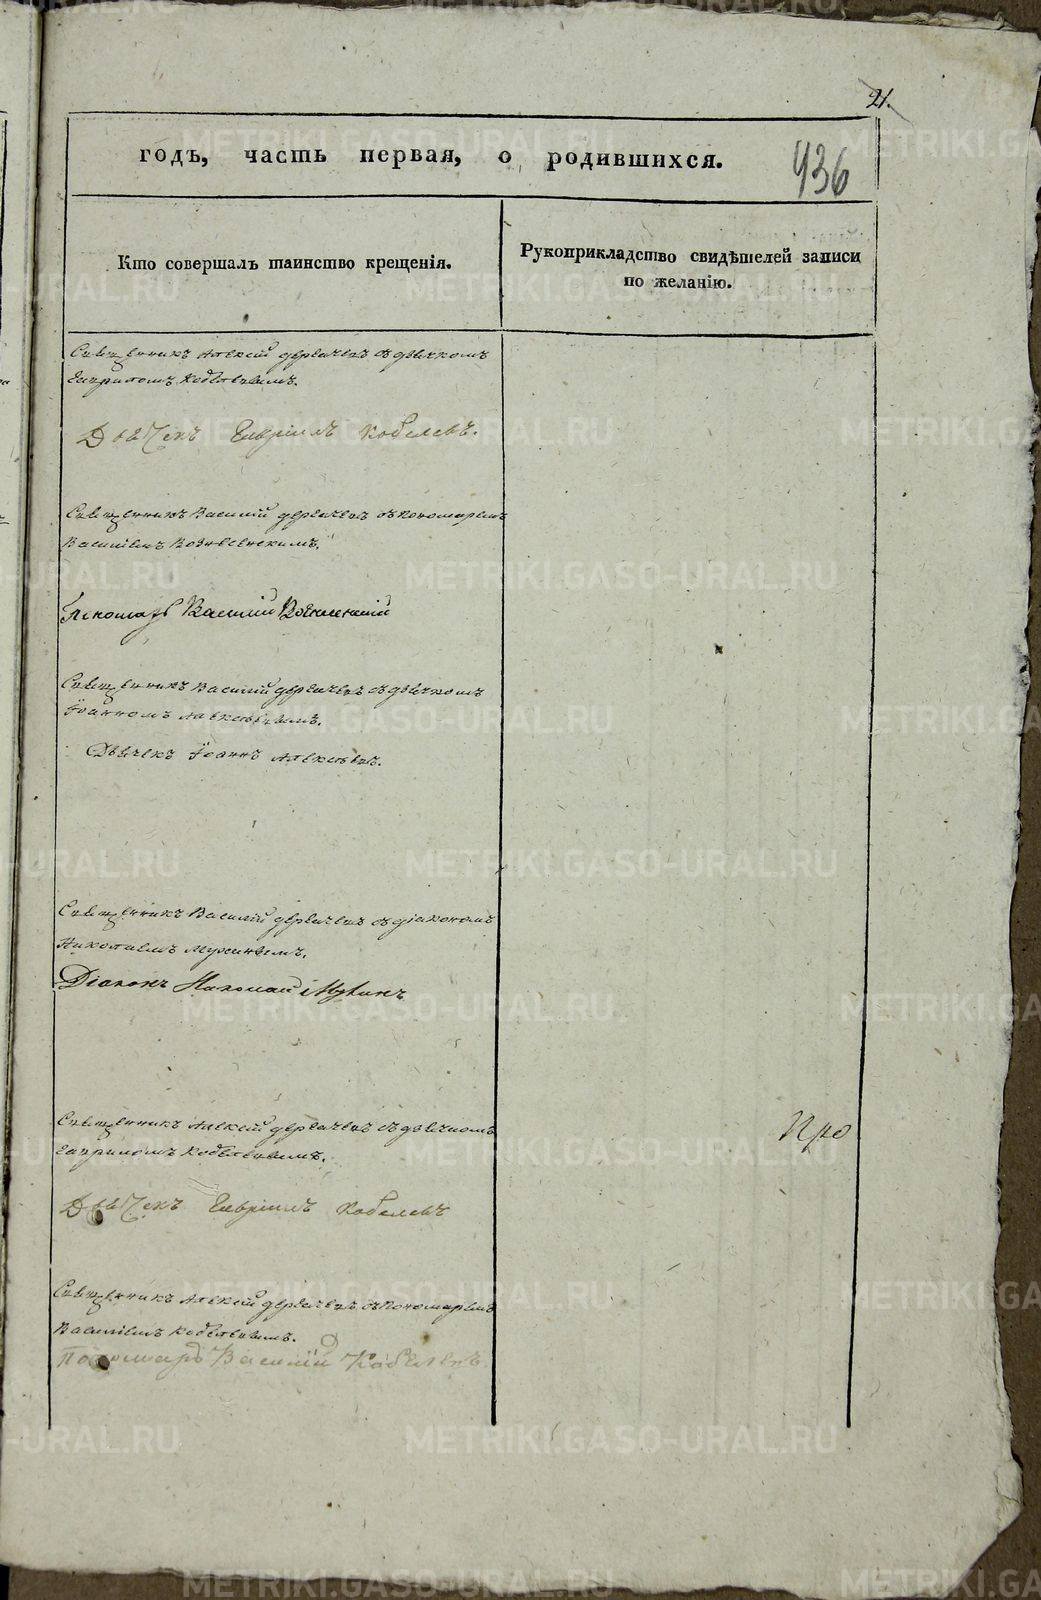 21.
годъ, часть первая, о родившихся.
436
Кто совершалъ таинство крещенія.
Рукоприкладство свидѣтелей записи
по желанію.
Священникъ Алексій Дерябинъ съ дьячкомъ
Гавриломъ Кобелевымъ.
Дьячекъ Гавріилъ Кобелевъ.
Священникъ Василій Дерябинъ съ пономаремъ
Василіемъ Вознесенскимъ.
Пономарь Василій Вознесенскій
Священникъ Василій Дерябинъ съ дьячкомъ
Іоанномъ Алексѣевымъ.
Дьячекъ Іоаннъ Алексѣевъ.
Священникъ Василій Дерябинъ съ діакономъ
Николаемъ Мухинымъ.
Діаконъ Николай Мухинъ
Священникъ Алексій Дерябинъ съ дьячкомъ
Гавриломъ Кобелевымъ.
Про
Дьячекъ Гавріилъ Кобелевъ
Священникъ Алексій Дерябинъ съ пономаремъ
Василіемъ Кобелевымъ.
Пономарь Василій Кобелевъ
METRIKI.GASO-URAL.RU